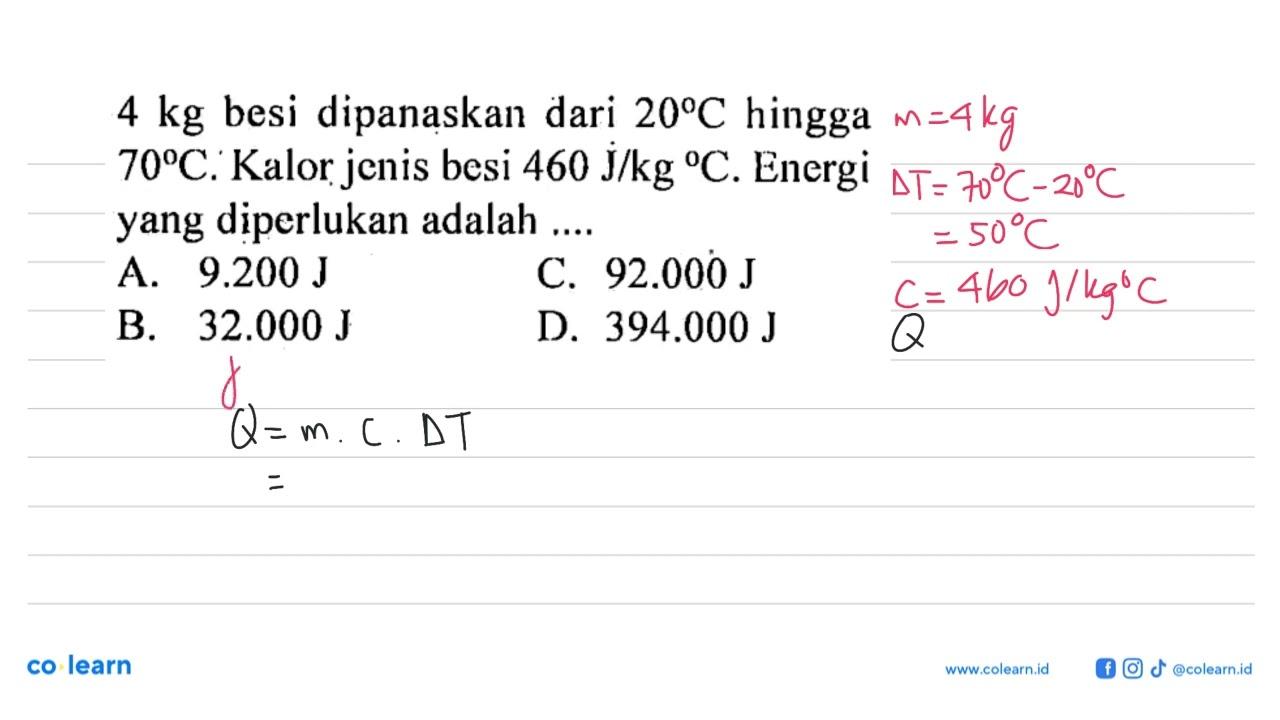 4 kg besi dipanaskan dari 20°C hingga
70°C. Kalor jenis besi 460 J/kg °C. Energi
yang diperlukan adalah ....
A. 9.200 J C. 92.000 J
B. 32.000 J D. 394.000 J
m = 4 kg
ΔT = 70°C - 20°C
= 50°C
C = 460 J/kg°C
Q
Q = m . C . ΔT
=
co learn
www.colearn.id
@colearn.id